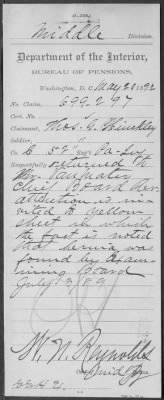 Middle
Division.
Department of the Interior,
BUREAU OF PENSIONS,
Washington, D. C., May 28, 1892
No. Claim, 699297
Cert. No.
Claimant, Thos. G. Hinckley
Soldier, "
Co. E 52" Reg't Pa. Inf
Respectfully returned to
Mr.
Chief Board Rev.
attention is in-
vited to yellow
in which
the fact is noted
that hernia was
found by Exam-
ining Board
July 3 89
M. N. Reynolds